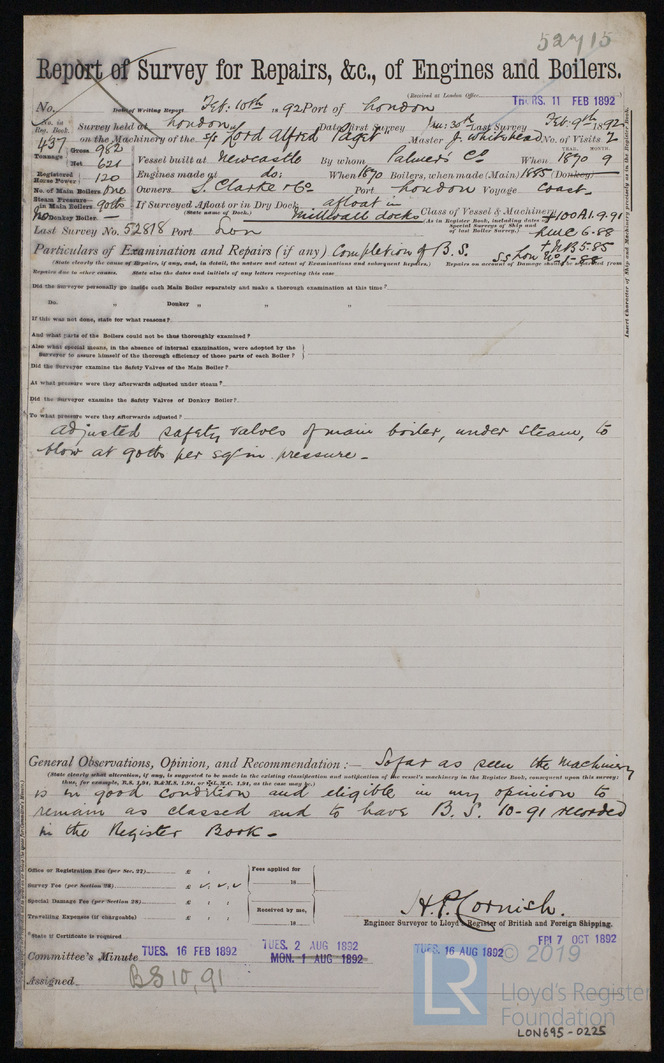 52715
Report of Survey for Repairs, &c., of Engines and Boilers.
(Received at London Office
THURS. 11 FEB 1892
No. Date of Writing Report Feb: 10th 1892 Port of London
No. in Reg. Book. Survey held at London Date, first Survey Jan: 30th Last Survey Feb. 9th 1892
437 on the Machinery of the S/S "Lord Alfred Paget" Master J. Whitehead No. of Visits 2
Tonnage Gross 982 Net 621
Vessel built at Newcastle By whom Palmers Co When 1870 YEAR. MONTH. 9
Registered Horse Power 120 Engines made at do: When 1870 Boilers, when made (Main) 1885 (Donkey) —
No. of Main Boilers One Owners S. Clarke & Co Port London Voyage Coast.
Steam Pressure in Main Boilers 90lbs If Surveyed Afloat or in Dry Dock afloat in
(State name of Dock.) Millwall docks Class of Vessel & Machinery +100A1.9.91
No Donkey Boiler — (As in Register Book, including dates of Special Surveys of Ship and of last Boiler Survey.) LMC 6-88
Last Survey No. 52818 Port Lon + NB 5.85
Particulars of Examination and Repairs (if any) Completion of B.S. SS Lon No 1-88
(State clearly the cause of Repairs, if any, and, in detail, the nature and extent of Examinations and subsequent Repairs.) Repairs on account of Damage should be separated from
Repairs due to other causes. State also the dates and initials of any letters respecting this case
Insert Character of Ship and Machinery precisely as in the Register Book.
Did the Surveyor personally go inside each Main Boiler separately and make a thorough examination at this time?
Do. " Donkey " " "
If this was not done, state for what reasons?
And what parts of the Boilers could not be thus thoroughly examined?
Also what special means, in the absence of internal examination, were adopted by the
Surveyor to assure himself of the thorough efficiency of those parts of each Boiler?
Did the Surveyor examine the Safety Valves of the Main Boiler?
At what pressure were they afterwards adjusted under steam?
Did the Surveyor examine the Safety Valves of Donkey Boiler?
To what pressure were they afterwards adjusted?
Adjusted safety valves of main boiler, under steam, to
blow at 90lbs per sq in pressure —
General Observations, Opinion, and Recommendation :— So far as seen the machinery
(State clearly what alteration, if any, is suggested to be made in the existing classification and notification of the vessel's machinery in the Register Book, consequent upon this survey;
thus, for example, B.S. 1,91, B.&M.S. 1,91, or L.M.C. 1,91, as the case may be.)
is in good condition and eligible in my opinion to
remain as classed and to have B.S. 10-91 recorded
in the Register Book —
Office or Registration Fee (per Sec. 27) £ : : Fees applied for
Survey Fee (per Section 28) £ 18
Special Damage Fee (per Section 28) £ : : Received by me,
Travelling Expenses (if chargeable) £ : : 18
H.P. Cornish.
Engineer Surveyor to Lloyd's Register of British and Foreign Shipping.
*State if Certificate is required
FRI 7 OCT 1892
Committee's Minute TUES. 16 FEB 1892 TUES. 2 AUG 1892 TUES. 16 AUG 1892
MON. 1 AUG 1892
Assigned BS 10,91
LR © 2019
Lloyd's Register
Foundation
LON695-0225